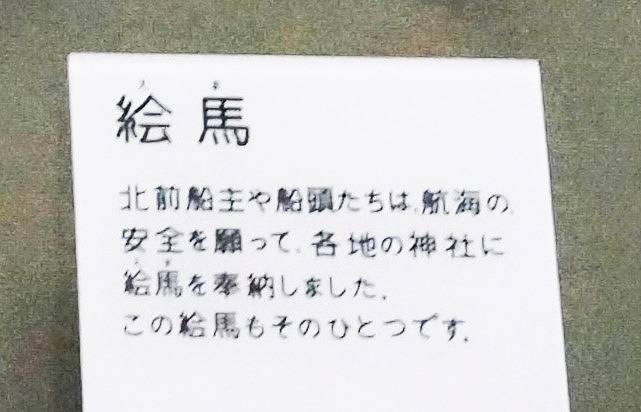 絵馬
北前船主や船頭たちは、航海の
安全を願って、各地の神社に
絵馬を奉納しました。
この絵馬もそのひとつです。